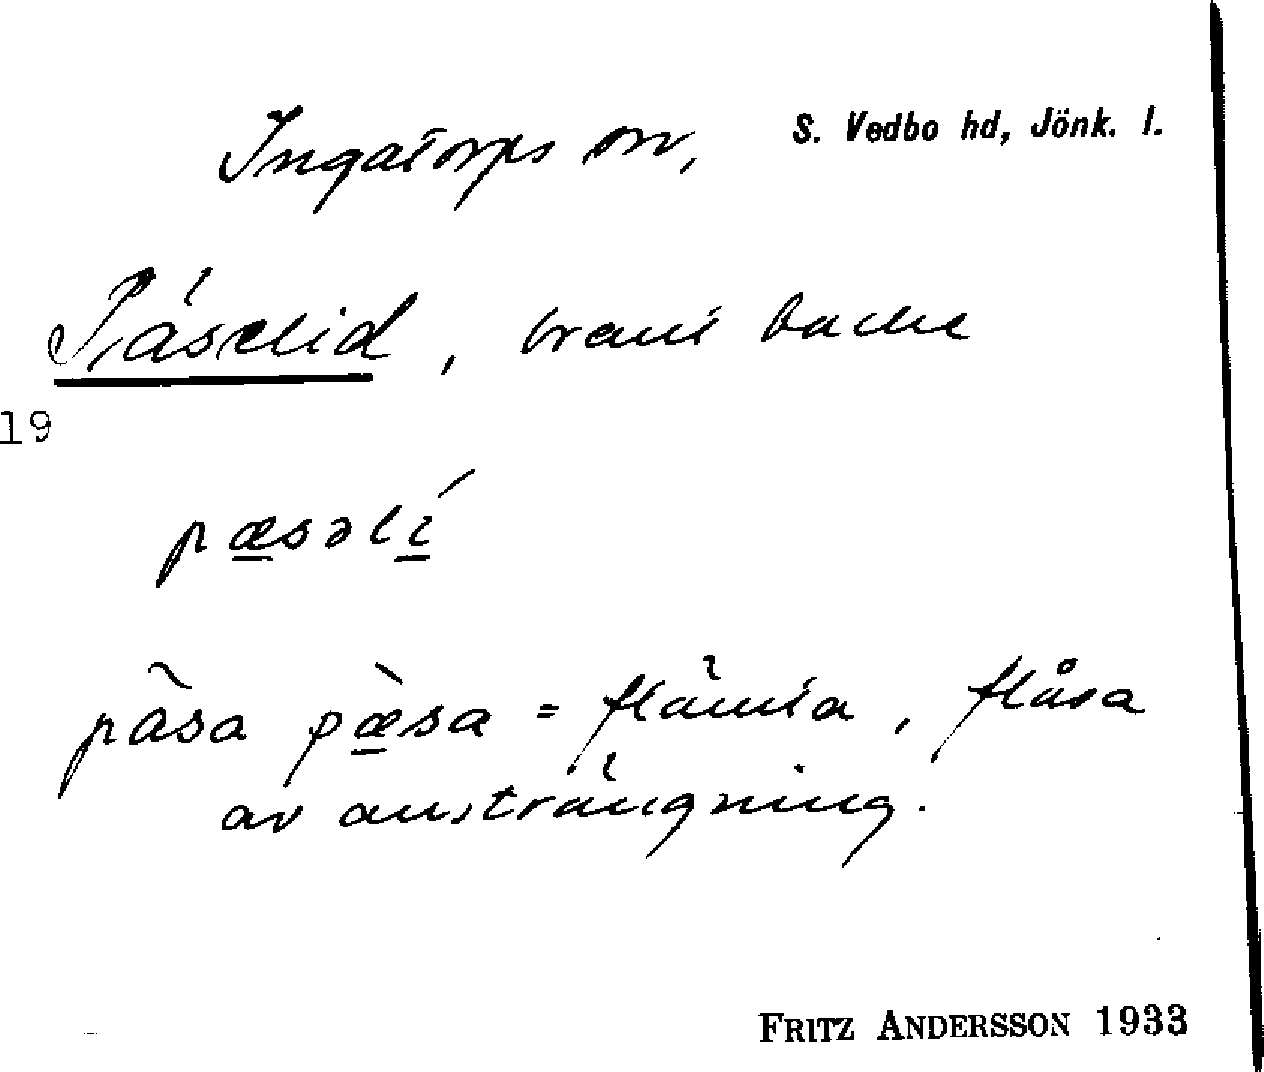 Ingatorps sn, S. Vedbo hd, Jönk. l.
Päselid, brant backe
19
pæsəlí
päsa pæ̀sa = flämta, flåsa
av ansträngning.
FRITZ ANDERSSON 1933